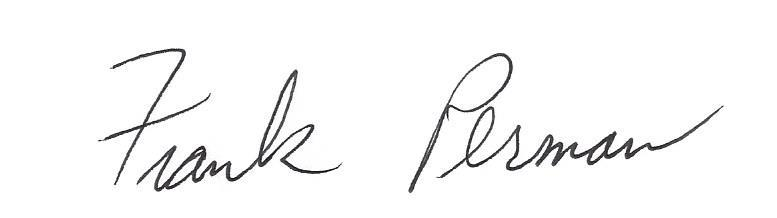 Frank Perman